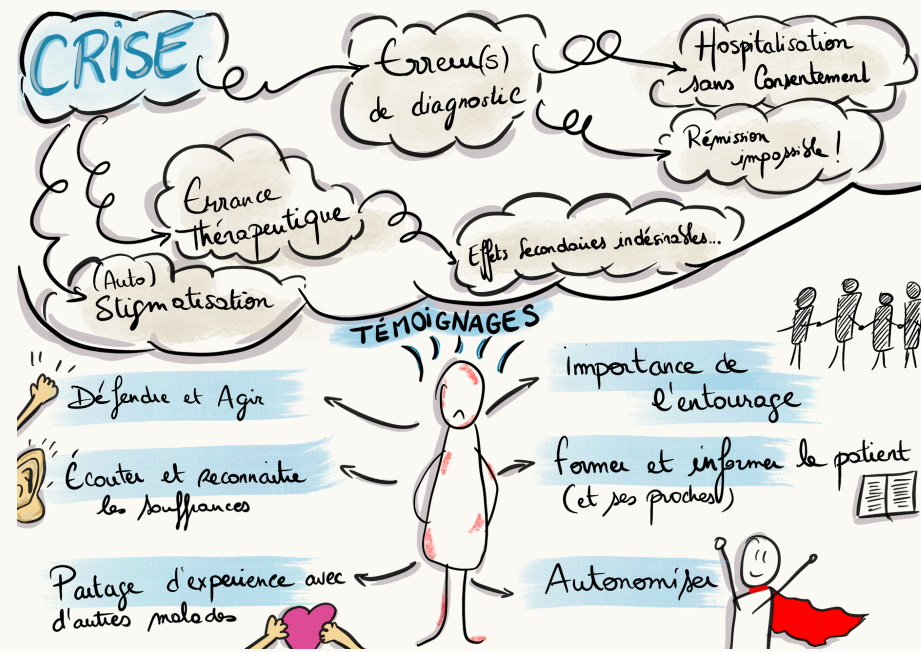 CRISE
Erreur(s)
de diagnostic
Hospitalisation
sans Consentement
Rémission
impossible !
Errance
thérapeutique
Effets Secondaires indésirables...
(Auto)
Stigmatisation
TÉMOIGNAGES
Défendre et Agir
Écouter et reconnaitre
les souffrances
Partage d'expérience avec
d'autres malades
importance de
l'entourage
former et informer le patient
(et ses proches)
Autonomiser